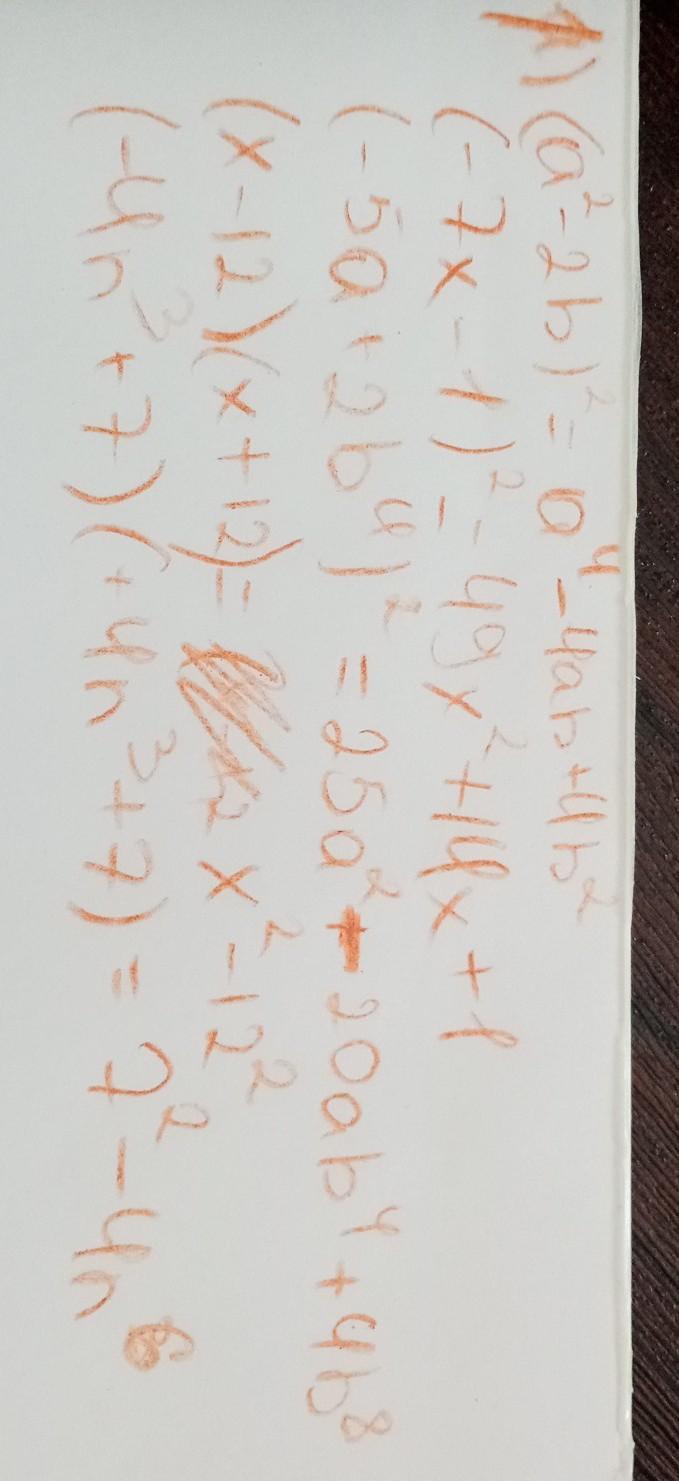 1) (a² - 2b)² = a⁴ - 4ab + 4b²
(-7x - 1)² = 49x² + 14x + 1
(-5a + 2b⁴)² = 25a² - 20ab⁴ + 4b⁸
(x - 12)(x + 12) = x² - 12²
(-4n³ + 7)(+4n³ + 7) = 7² - 4n⁶